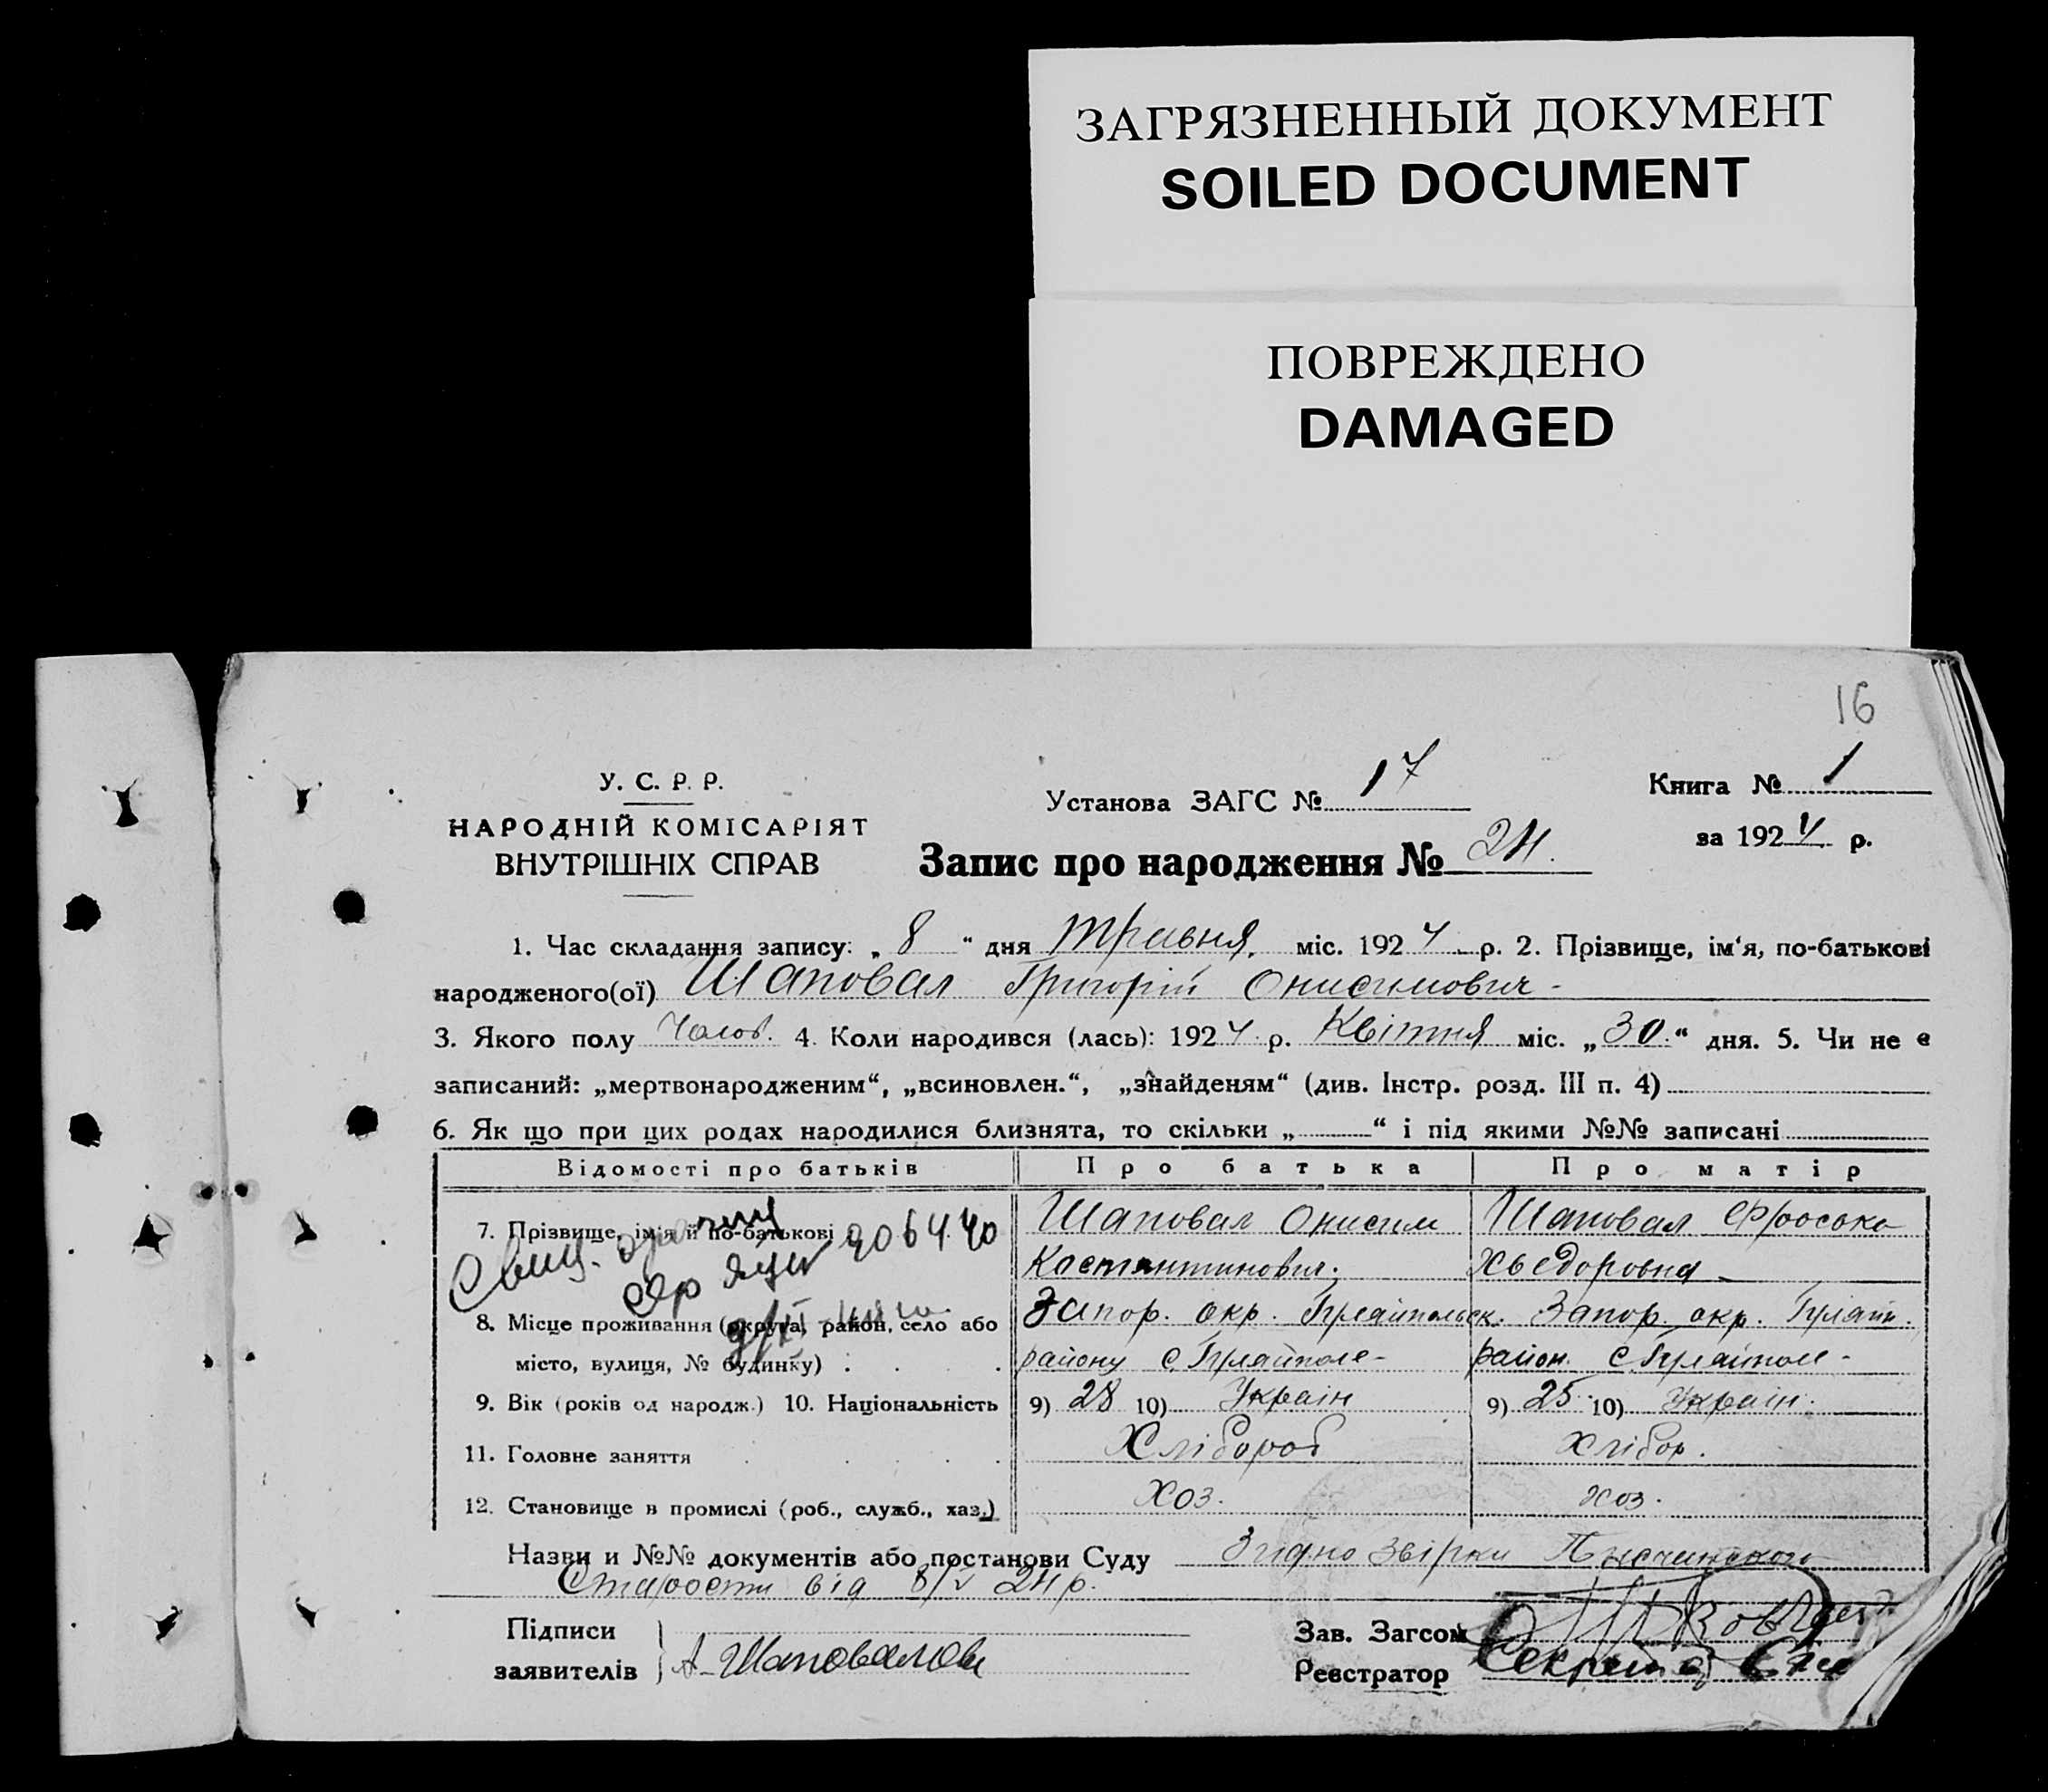 ЗАГРЯЗНЕННЫЙ ДОКУМЕНТ
SOILED DOCUMENT
ПОВРЕЖДЕНО
DAMAGED
16
У. С. Р. Р.
НАРОДНІЙ КОМІСАРІЯТ
ВНУТРІШНІХ СПРАВ
Установа ЗАГС № 17
Книга № 1
за 1924 р.
Запис про народження № 24.
1. Час складання запису: „ 8 “ дня травня міс. 1924 р. 2. Прізвище, ім‘я, по-батькові
народженого(ої) Шаповал Григорій Онисимович -
3. Якого полу Чолов. 4. Коли народився (лась): 1924 р. Квітня міс. „30.“ дня. 5. Чи не є
записаний: „мертвонародженим“, „всиновлен.“, „знайденям“ (див. Інстр. розд. III п. 4)
6. Як що при цих родах народилися близнята, то скільки „ “ і під якими №№ записані
Відомості про батьків Про батька Про матір
7. Прізвище, ім‘я й по-батькові Шаповал Онисим Шаповал
Костянтинович. Хведоровна
8. Місце проживання (округа, район, село або Запор. окр. Гуляйпольск. Запор. окр. Гуляйп.
місто, вулиця, № будинку) району с. Гуляйполе - район. с. Гуляйполе -
9. Вік (років од народж.) 10. Національність 9) 28 10) Украін 9) 25 10) Украін.
11. Головне заняття Хлібороб Хлібор.
12. Становище в промислі (роб., служб., хаз.) Хоз. хоз.
Назви и №№ документів або постанови Суду Згідно звірки
Старости від 8/V 24 р.
Підписи
заявителів А Шаповалов
Зав. Загсом
Реєстратор Секретар